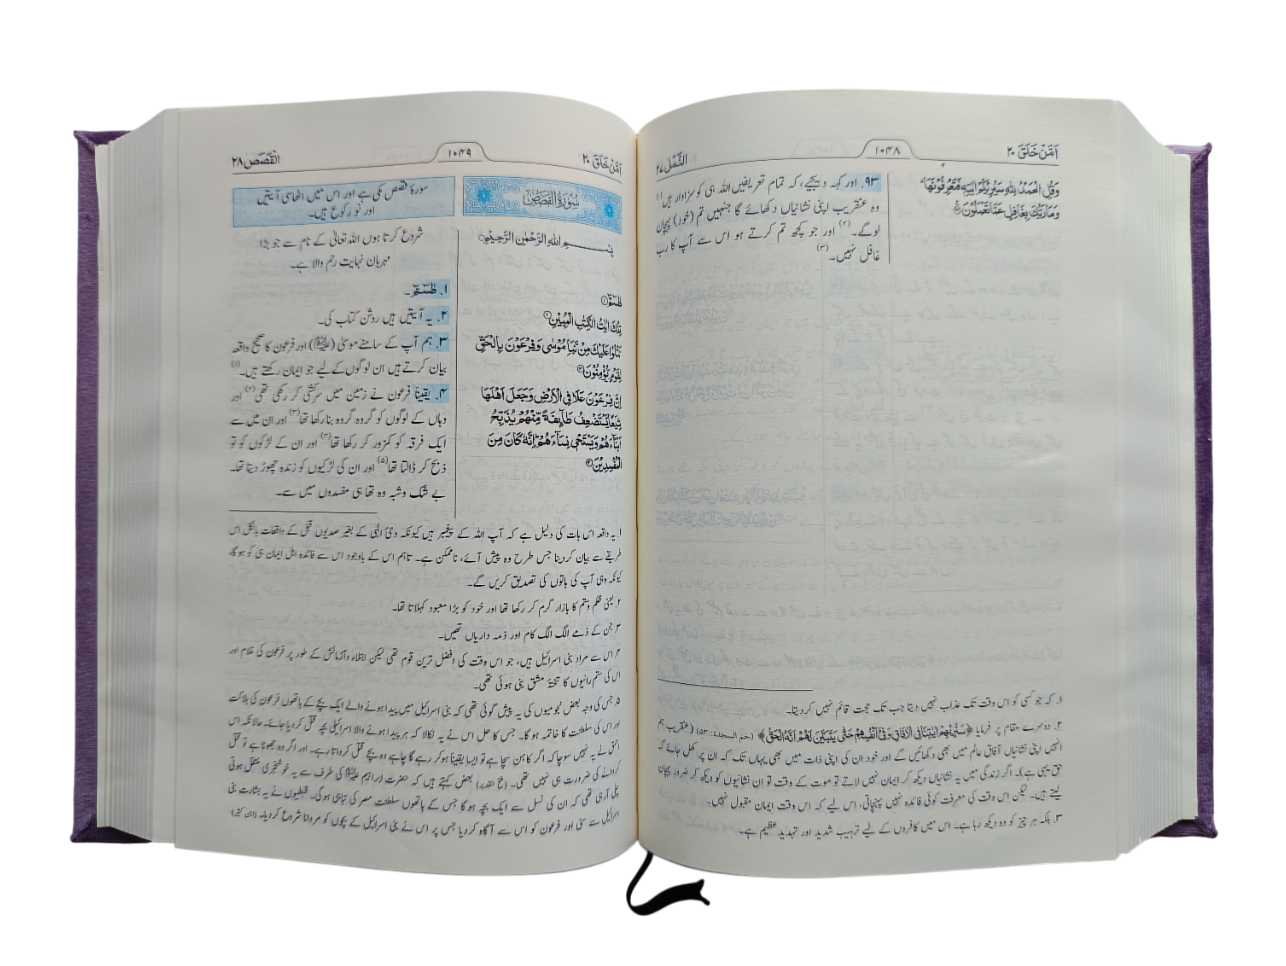 اَمَّنْ خَلَقَ ۲۰
۱۰۴۸
النَّمْل ۲۷
وَقُلِ الْحَمْدُ لِلّٰهِ سَيُرِيْكُمْ اٰيٰتِهٖ فَتَعْرِفُوْنَهَا ۭ
وَمَا رَبُّكَ بِغَافِلٍ عَمَّا تَعْمَلُوْنَ
۹۳. اور کہہ دیجیے، کہ تمام تعریفیں اللہ ہی کو سزاوار ہیں (۱)
وہ عنقریب اپنی نشانیاں دکھائے گا جنہیں تم (خود) پہچان
لوگے۔ (۲) اور جو کچھ تم کرتے ہو اس سے آپ کا رب
غافل نہیں۔ (۳)
۱. کہ جو کسی کو اس وقت تک عذاب نہیں دیتا جب تک حجت قائم نہیں کر دیتا۔
۲. دوسرے مقام پر فرمایا ﴿سَنُرِيْهِمْ اٰيٰتِنَا فِي الْاٰفَاقِ وَفِيْٓ اَنْفُسِهِمْ حَتّٰى يَتَبَيَّنَ لَهُمْ اَنَّهُ الْحَقُّ﴾ (حٰم السجدة: ۵۳) (عنقریب ہم
انہیں اپنی نشانیاں آفاق عالم میں بھی دکھائیں گے اور خود ان کی اپنی ذات میں بھی یہاں تک کہ ان پر کھل جائے کہ
حق یہی ہے)۔ اگر زندگی میں یہ نشانیاں دیکھ کر ایمان نہیں لاتے تو موت کے وقت تو ان نشانیوں کو دیکھ کر ضرور پہچان
لیتے ہیں۔ لیکن اس وقت کی معرفت کوئی فائدہ نہیں پہنچاتی، اس لیے کہ اس وقت ایمان مقبول نہیں۔
۳. بلکہ ہر چیز کو وہ دیکھ رہا ہے۔ اس میں کافروں کے لیے ترہیب شدید اور تہدید عظیم ہے۔
اَمَّنْ خَلَقَ ۲۰
۱۰۴۹
الْقَصَص ۲۸
سُوْرَةُ الْقَصَصِ
بِسْمِ اللهِ الرَّحْمٰنِ الرَّحِيْمِ
طٰسۗمّۗ ①
تِلْكَ اٰيٰتُ الْكِتٰبِ الْمُبِيْنِ ②
نَتْلُوْا عَلَيْكَ مِنْ نَّبَاِ مُوْسٰى وَفِرْعَوْنَ بِالْحَقِّ
لِقَوْمٍ يُّؤْمِنُوْنَ ③
اِنَّ فِرْعَوْنَ عَلَا فِي الْاَرْضِ وَجَعَلَ اَهْلَهَا
شِيَعًا يَّسْتَضْعِفُ طَاۤىِٕفَةً مِّنْهُمْ يُذَبِّحُ
اَبْنَاۤءَهُمْ وَيَسْتَحْيٖ نِسَاۤءَهُمْ ۭ اِنَّهٗ كَانَ مِنَ
الْمُفْسِدِيْنَ ④
سورۂ قصص مکی ہے اور اس میں اٹھاسی آیتیں
اور نو رکوع ہیں۔
شروع کرتا ہوں اللہ تعالیٰ کے نام سے جو بڑا
مہربان نہایت رحم والا ہے۔
۱. طٰسٓمٓ۔
۲. یہ آیتیں ہیں روشن کتاب کی۔
۳. ہم آپ کے سامنے موسیٰ (علیہ السلام) اور فرعون کا صحیح واقعہ
بیان کرتے ہیں ان لوگوں کے لیے جو ایمان رکھتے ہیں۔ (۱)
۴. یقیناً فرعون نے زمین میں سرکشی کر رکھی تھی (۲) اور
وہاں کے لوگوں کو گروہ گروہ بنا رکھا تھا (۳) اور ان میں سے
ایک فرقہ کو کمزور کر رکھا تھا (۴) اور ان کے لڑکوں کو تو
ذبح کر ڈالتا تھا (۵) اور ان کی لڑکیوں کو زندہ چھوڑ دیتا تھا۔
بے شک وشبہ وہ تھا ہی مفسدوں میں سے۔
۱. یہ واقعہ اس بات کی دلیل ہے کہ آپ اللہ کے پیغمبر ہیں کیونکہ وحی الٰہی کے بغیر صدیوں قبل کے واقعات بالکل اس
طریقے سے بیان کر دینا جس طرح وہ پیش آئے، ناممکن ہے۔ تاہم اس کے باوجود اس سے فائدہ اہل ایمان ہی کو ہوگا،
کیونکہ وہی آپ کی باتوں کی تصدیق کریں گے۔
۲. یعنی ظلم وستم کا بازار گرم کر رکھا تھا اور خود کو بڑا معبود کہلاتا تھا۔
۳. جن کے ذمے الگ الگ کام اور ذمہ داریاں تھیں۔
۴. اس سے مراد بنی اسرائیل ہیں، جو اس وقت کی افضل ترین قوم تھی لیکن ابتلاء و آزمائش کے طور پر فرعون کی غلام اور
اس کی ستم رانیوں کا تختۂ مشق بنی ہوئی تھی۔
۵. جس کی وجہ بعض نجومیوں کی یہ پیش گوئی تھی کہ بنی اسرائیل میں پیدا ہونے والے ایک بچے کے ہاتھوں فرعون کی ہلاکت
اور اس کی سلطنت کا خاتمہ ہوگا۔ جس کا حل اس نے یہ نکالا کہ ہر پیدا ہونے والا اسرائیلی بچہ قتل کر دیا جائے۔ حالانکہ اس
احمق نے یہ نہیں سوچا کہ اگر کاہن سچا ہے تو ایسا یقیناً ہو کر رہے گا چاہے وہ بچے قتل کرواتا رہے۔ اور اگر وہ جھوٹا ہے تو قتل
کروانے کی ضرورت ہی نہیں تھی۔ (فتح القدیر) بعض کہتے ہیں کہ حضرت ابراہیم علیہ السلام کی طرف سے یہ خوشخبری منتقل ہوتی
چلی آرہی تھی کہ ان کی نسل سے ایک بچہ ہوگا جس کے ہاتھوں سلطنت مصر کی تباہی ہوگی۔ قبطیوں نے یہ بشارت بنی
اسرائیل سے سنی اور فرعون کو اس سے آگاہ کر دیا جس پر اس نے بنی اسرائیل کے بچوں کو مروانا شروع کر دیا۔ (ابن کثیر)